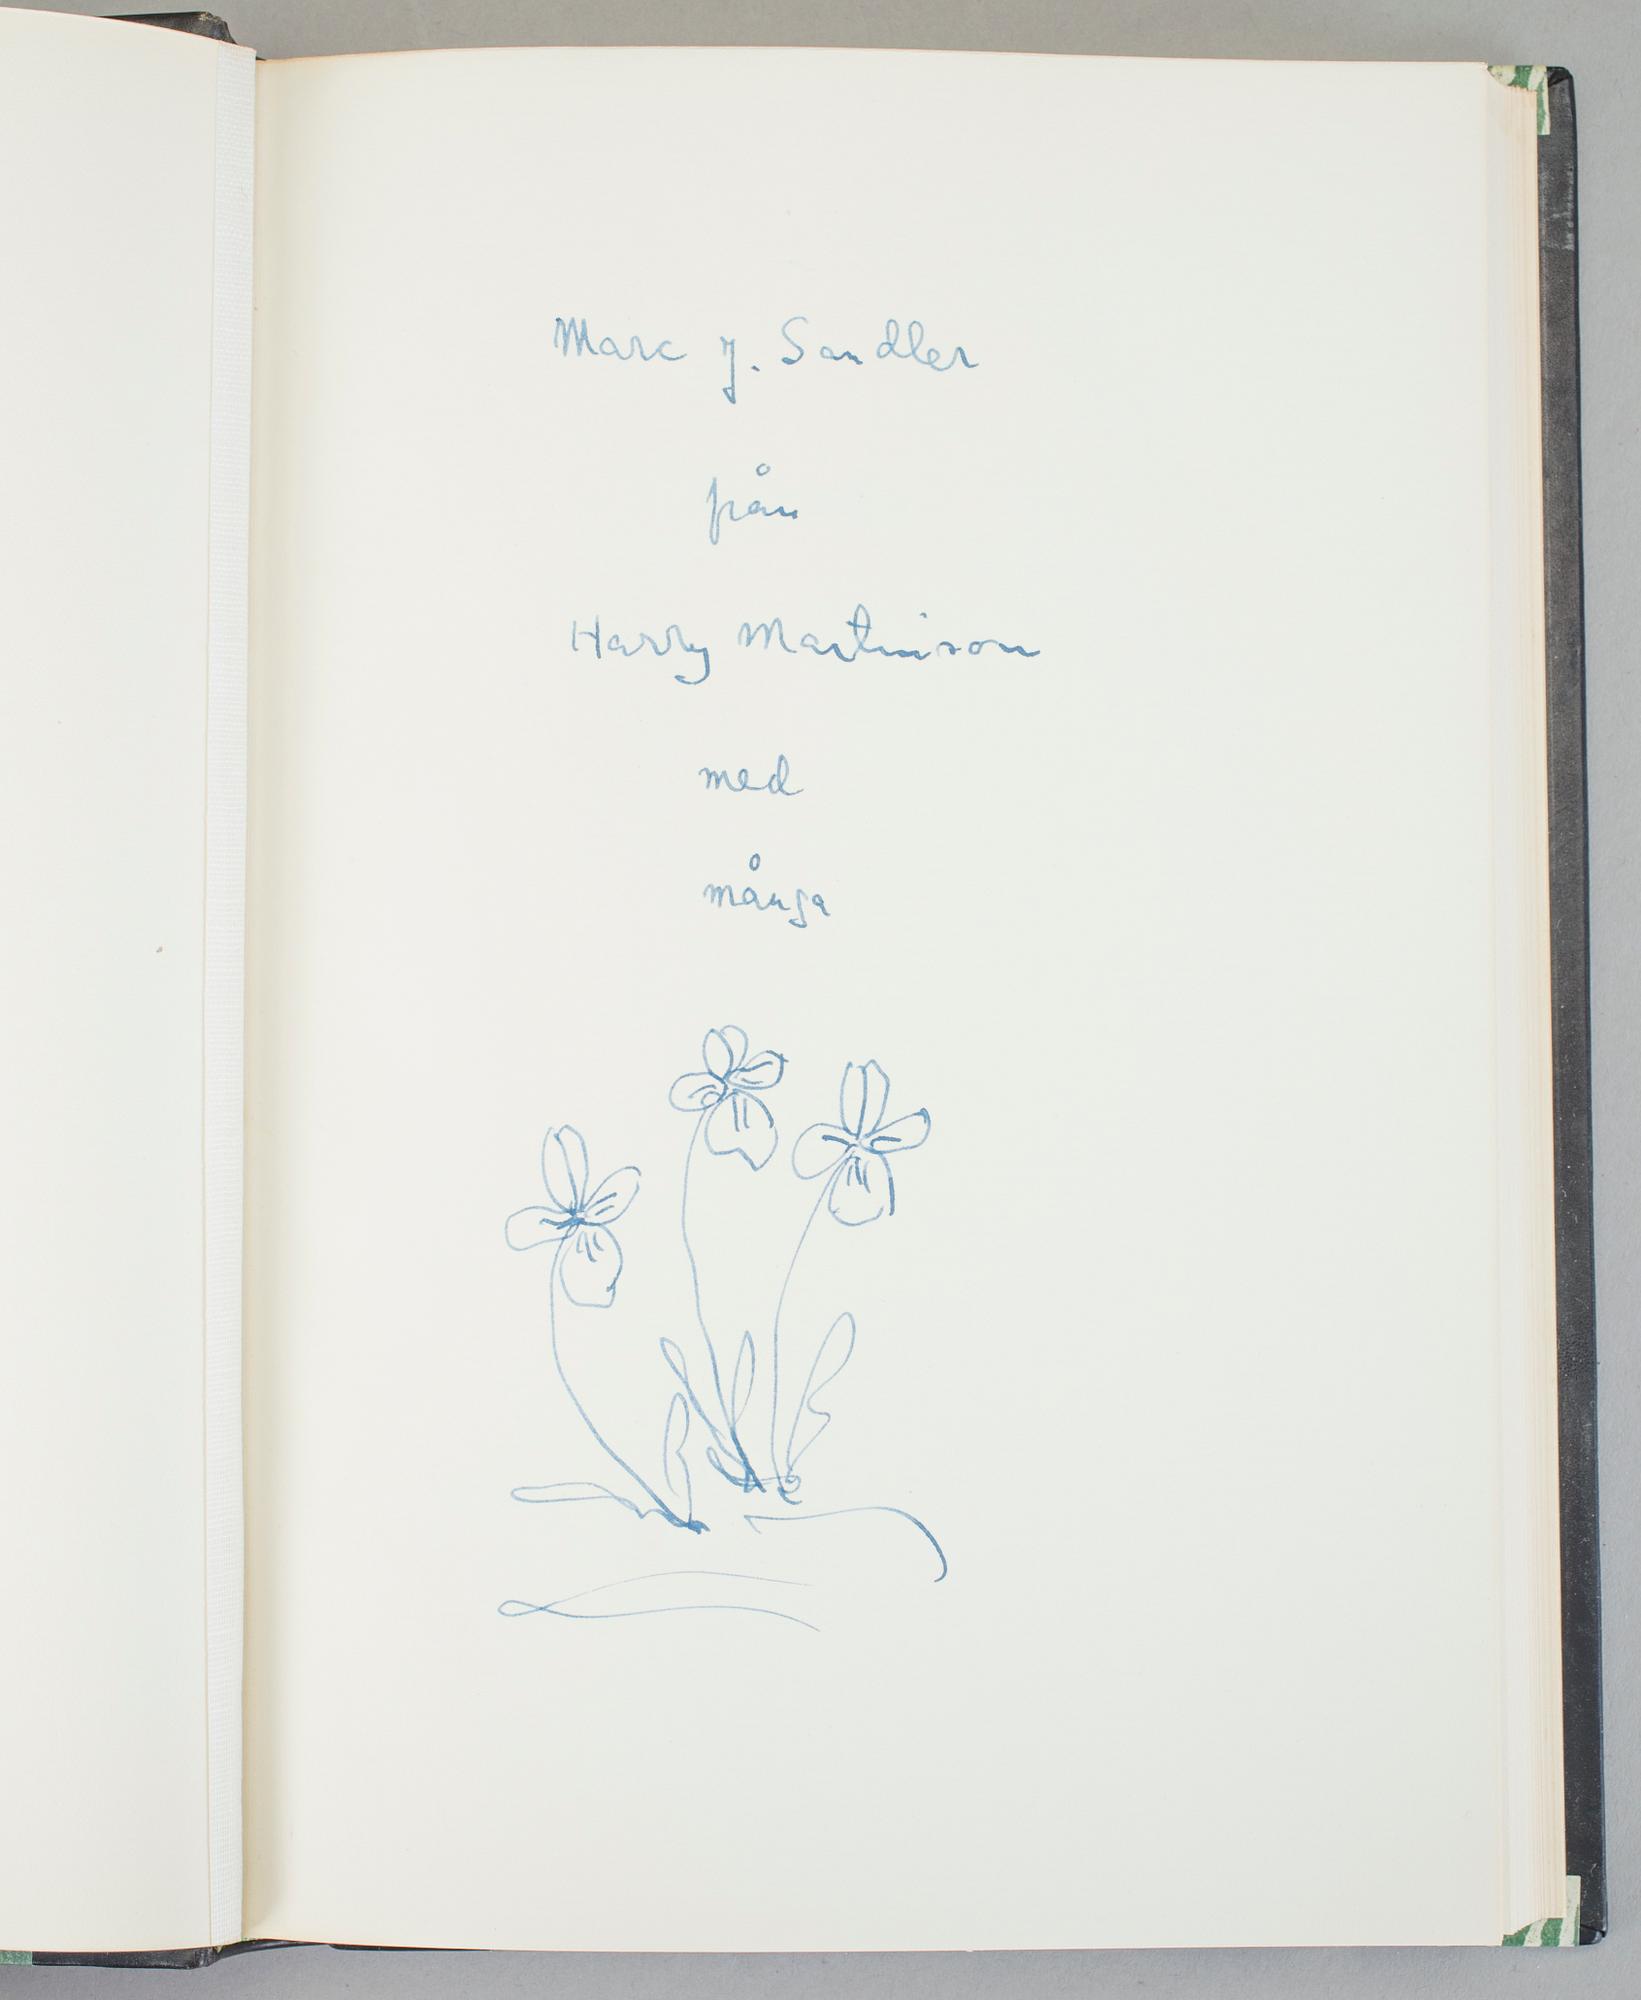 Marc J. Sandler
från
Harry Martinson
med
många